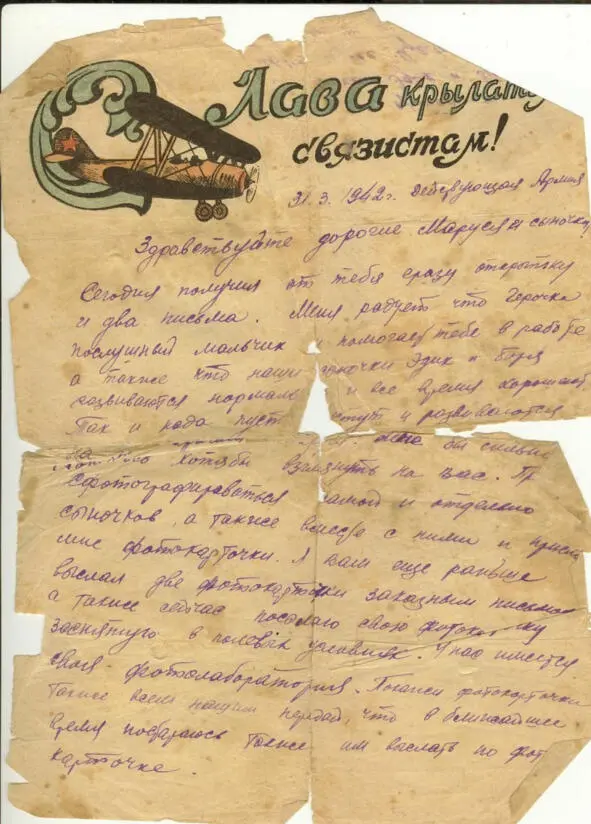 Лава крылату
связистам!
31.3.1942г. Действующая Армия
Здравствуйте дорогие Маруся и сыночки
Сегодня получил от тебя сразу открытку
и два письма. Меня радует что Герочка
послушный мальчик и помогает тебе в работе
а также что наши сыночки Эдик и Боря
развиваются нормаль и все время хорошеют.
Так и надо пуст стут и развиваются
бы сильно
хотябы взглянуть на вас. Пр
сфотографироваться самой и отдельно
сыночков, а также вместе с ними и присл
мне фотокарточки. Я вам еще раньше
выслал две фотокарточки заказным письмом
а также сейчас посылаю свою фоток ку
заснятую в полевых условиях. У нас имеется
своя фотолаборатория.
фотокарточки
также всем нашим передай, что в ближайшее
время постараюсь также им выслать по фот
карточке.